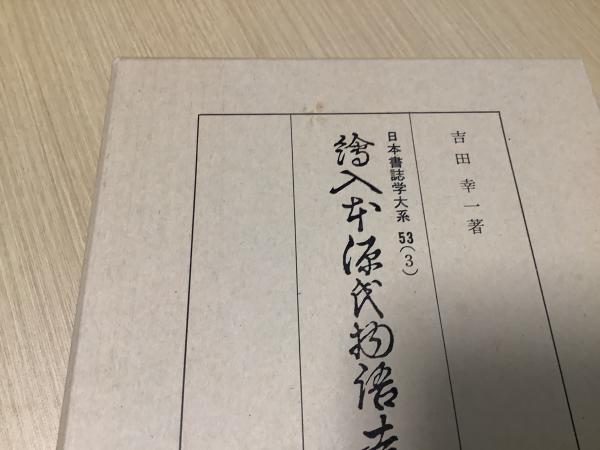 吉田幸一著
日本書誌学大系 53(3)
繪入本源氏物語考